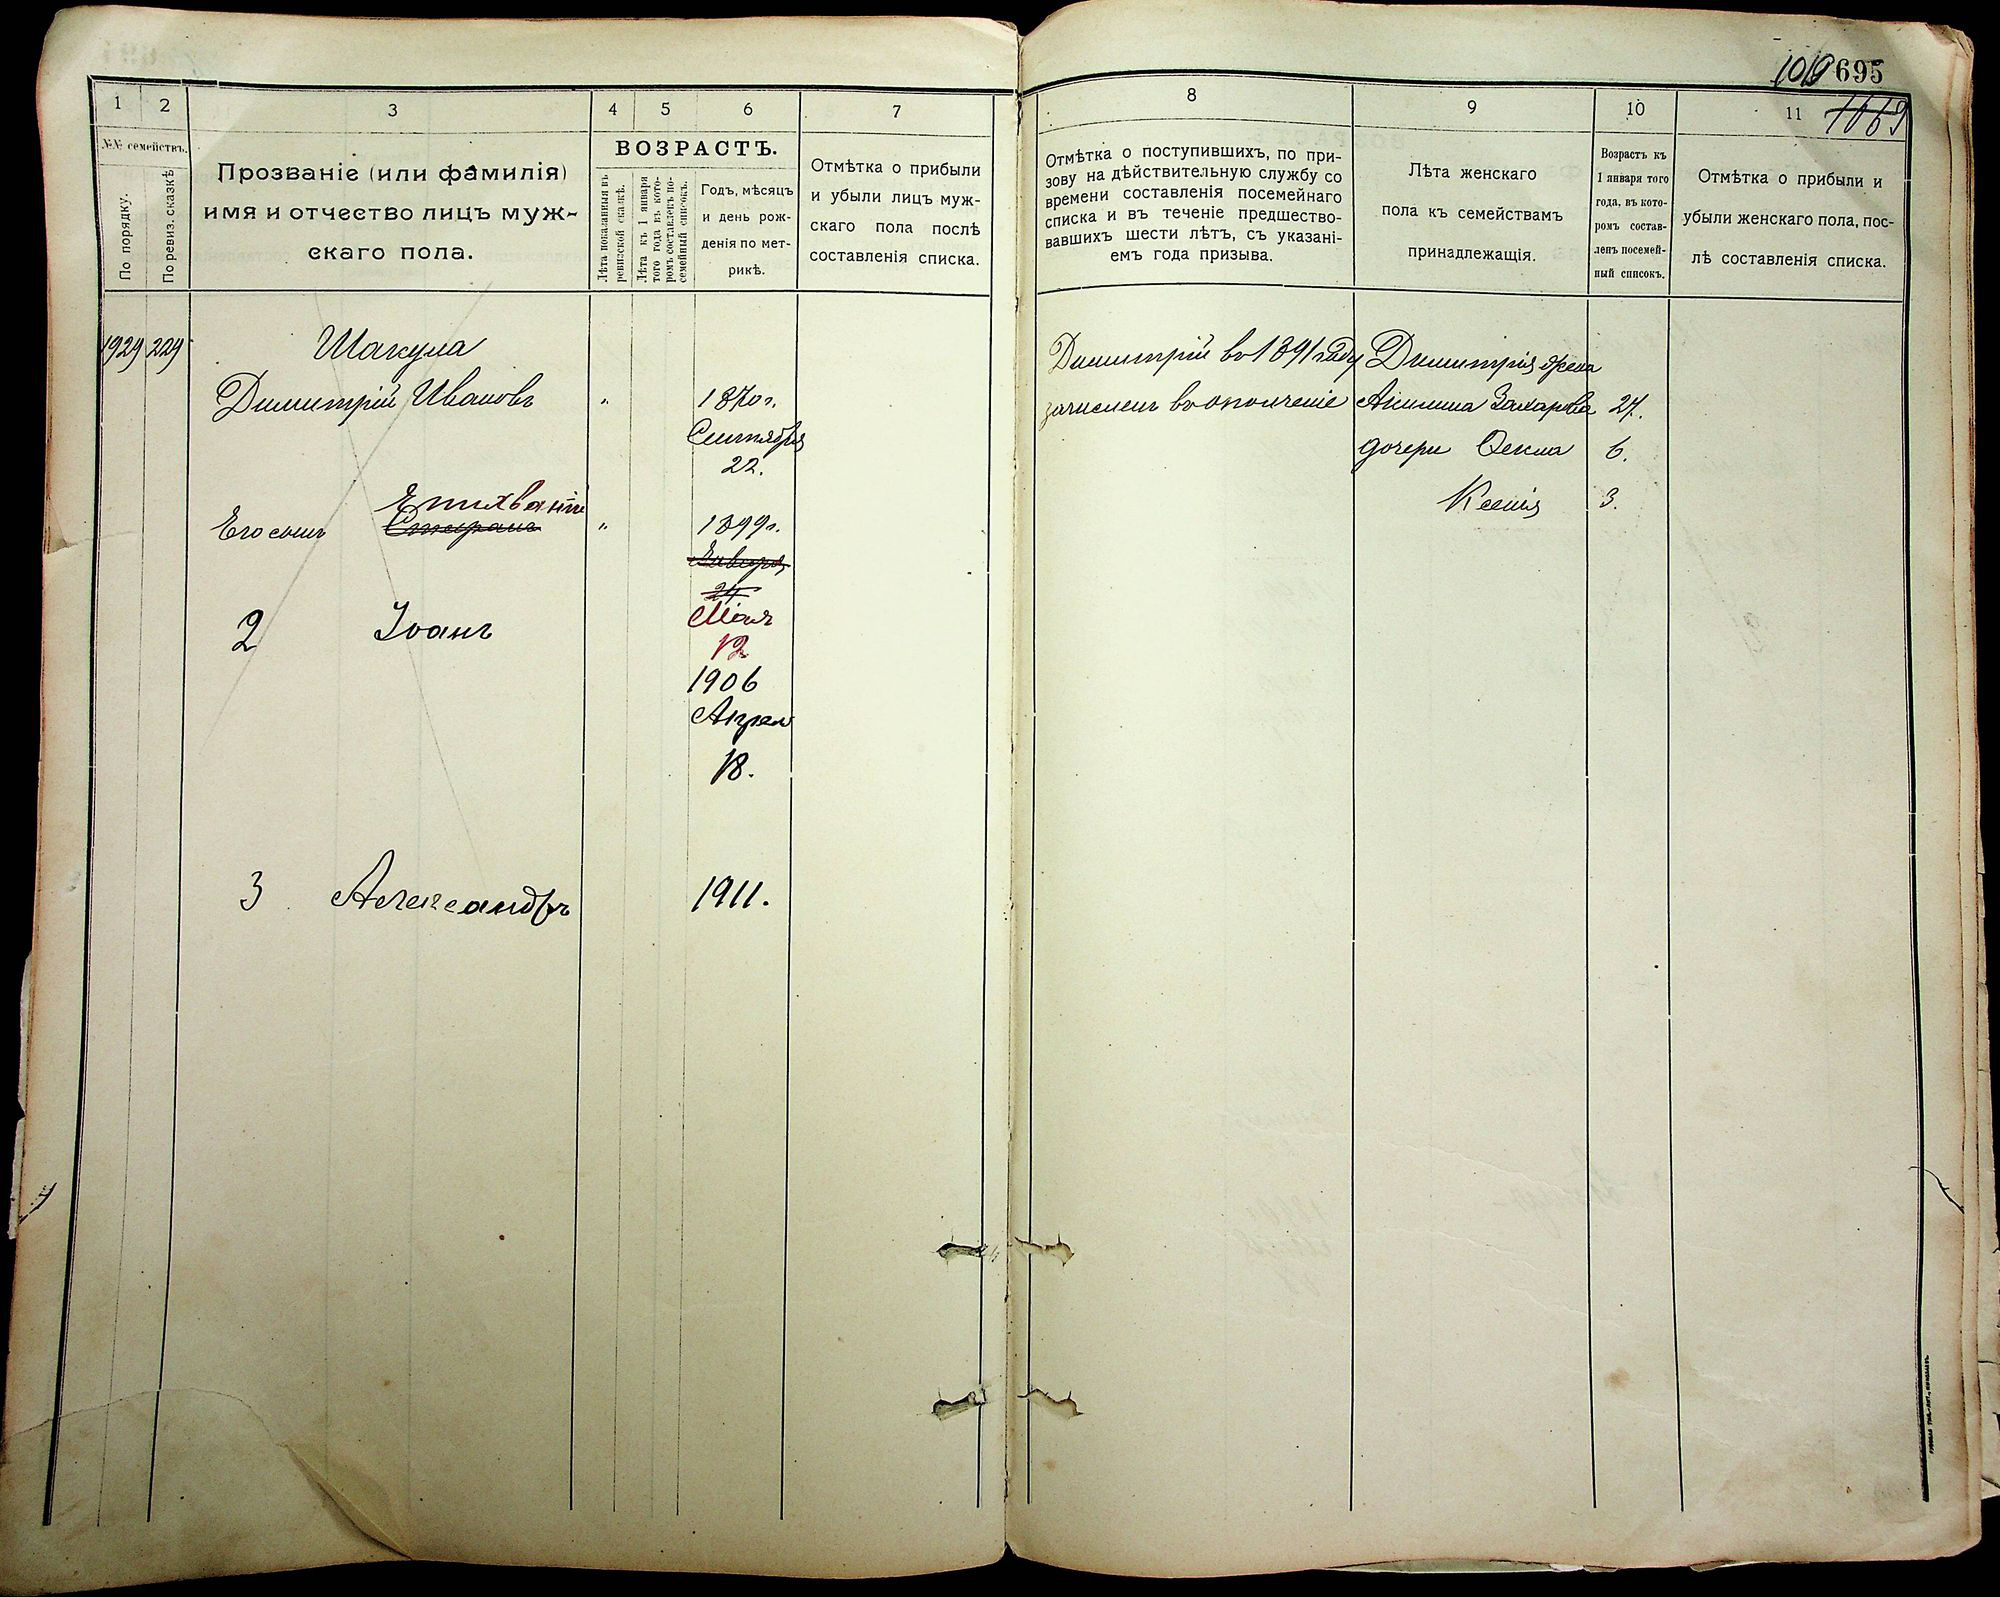 1019 695
1069
1
2
3
4
5
6
7
№№ семействъ.
По порядку.
По ревиз. сказкѣ
Прозваніе (или фамилія)
имя и отчество лицъ муж-
скаго пола.
ВОЗРАСТЪ.
Лѣта показанныя въ
ревизской сказкѣ.
Лѣта къ 1 января
того года въ кото-
ромъ составленъ по-
семейный списокъ.
Годъ, мѣсяцъ
и день рож-
денія по мет-
рикѣ.
Отмѣтка о прибыли
и убыли лицъ муж-
скаго пола послѣ
составленія списка.
1929 229
Шакула
Димитрій Ивановъ " 1870 г.
Сентября
22.
Его сынъ " 1899 г.
Января
24
Мая
12
2 Іоанъ
1906
Апрел
18.
3 Александръ 1911.
8
9
10
11
Отмѣтка о поступившихъ, по при-
зову на дѣйствительную службу со
времени составленія посемейнаго
списка и въ теченіе предшество-
вавшихъ шести лѣтъ, съ указані-
емъ года призыва.
Лѣта женскаго
пола къ семействамъ
принадлежащія.
Возрастъ къ
1 января того
года, въ кото-
ромъ состав-
ленъ посемей-
ный списокъ.
Отмѣтка о прибыли и
убыли женскаго пола, пос-
лѣ составленія списка.
Димитрій въ 1891 году Димитрія жена
зачисленъ въ ополченіе Акилина Захарова 27.
дочери Ѳекла 6.
Ксенія 3.